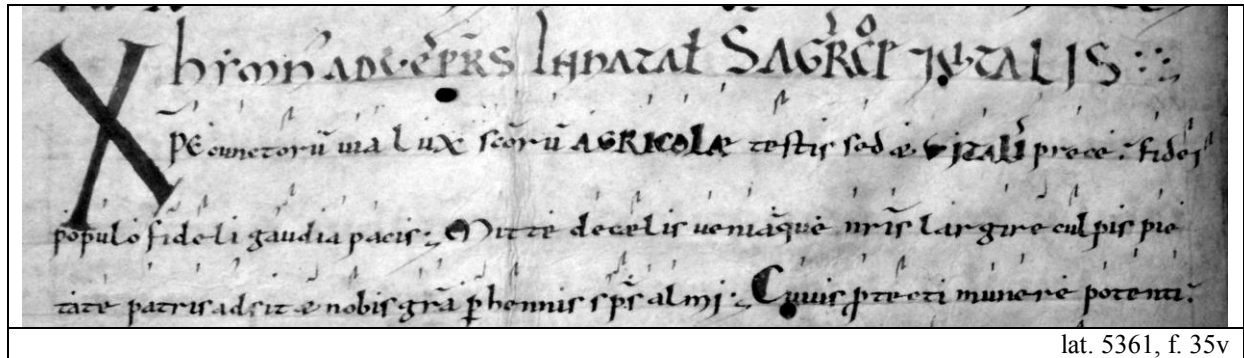 hỳmn̄ ADVĒPR̄S IN NATAL̄ SAGR̄CŌP IVITALIS
XPE cunctorū uia Lux sc̄orū AGRICOLÆ testis sed & VITALĪ prece fides
populo fideli gaudia pacis; Mitte de celis ueniāque nr̄is Largire culpis pie
tate patris adsit & nobis gr̄a p̄hennis sp̄s almi; Cuius p̄tecti munere potenti
lat. 5361, f. 35v